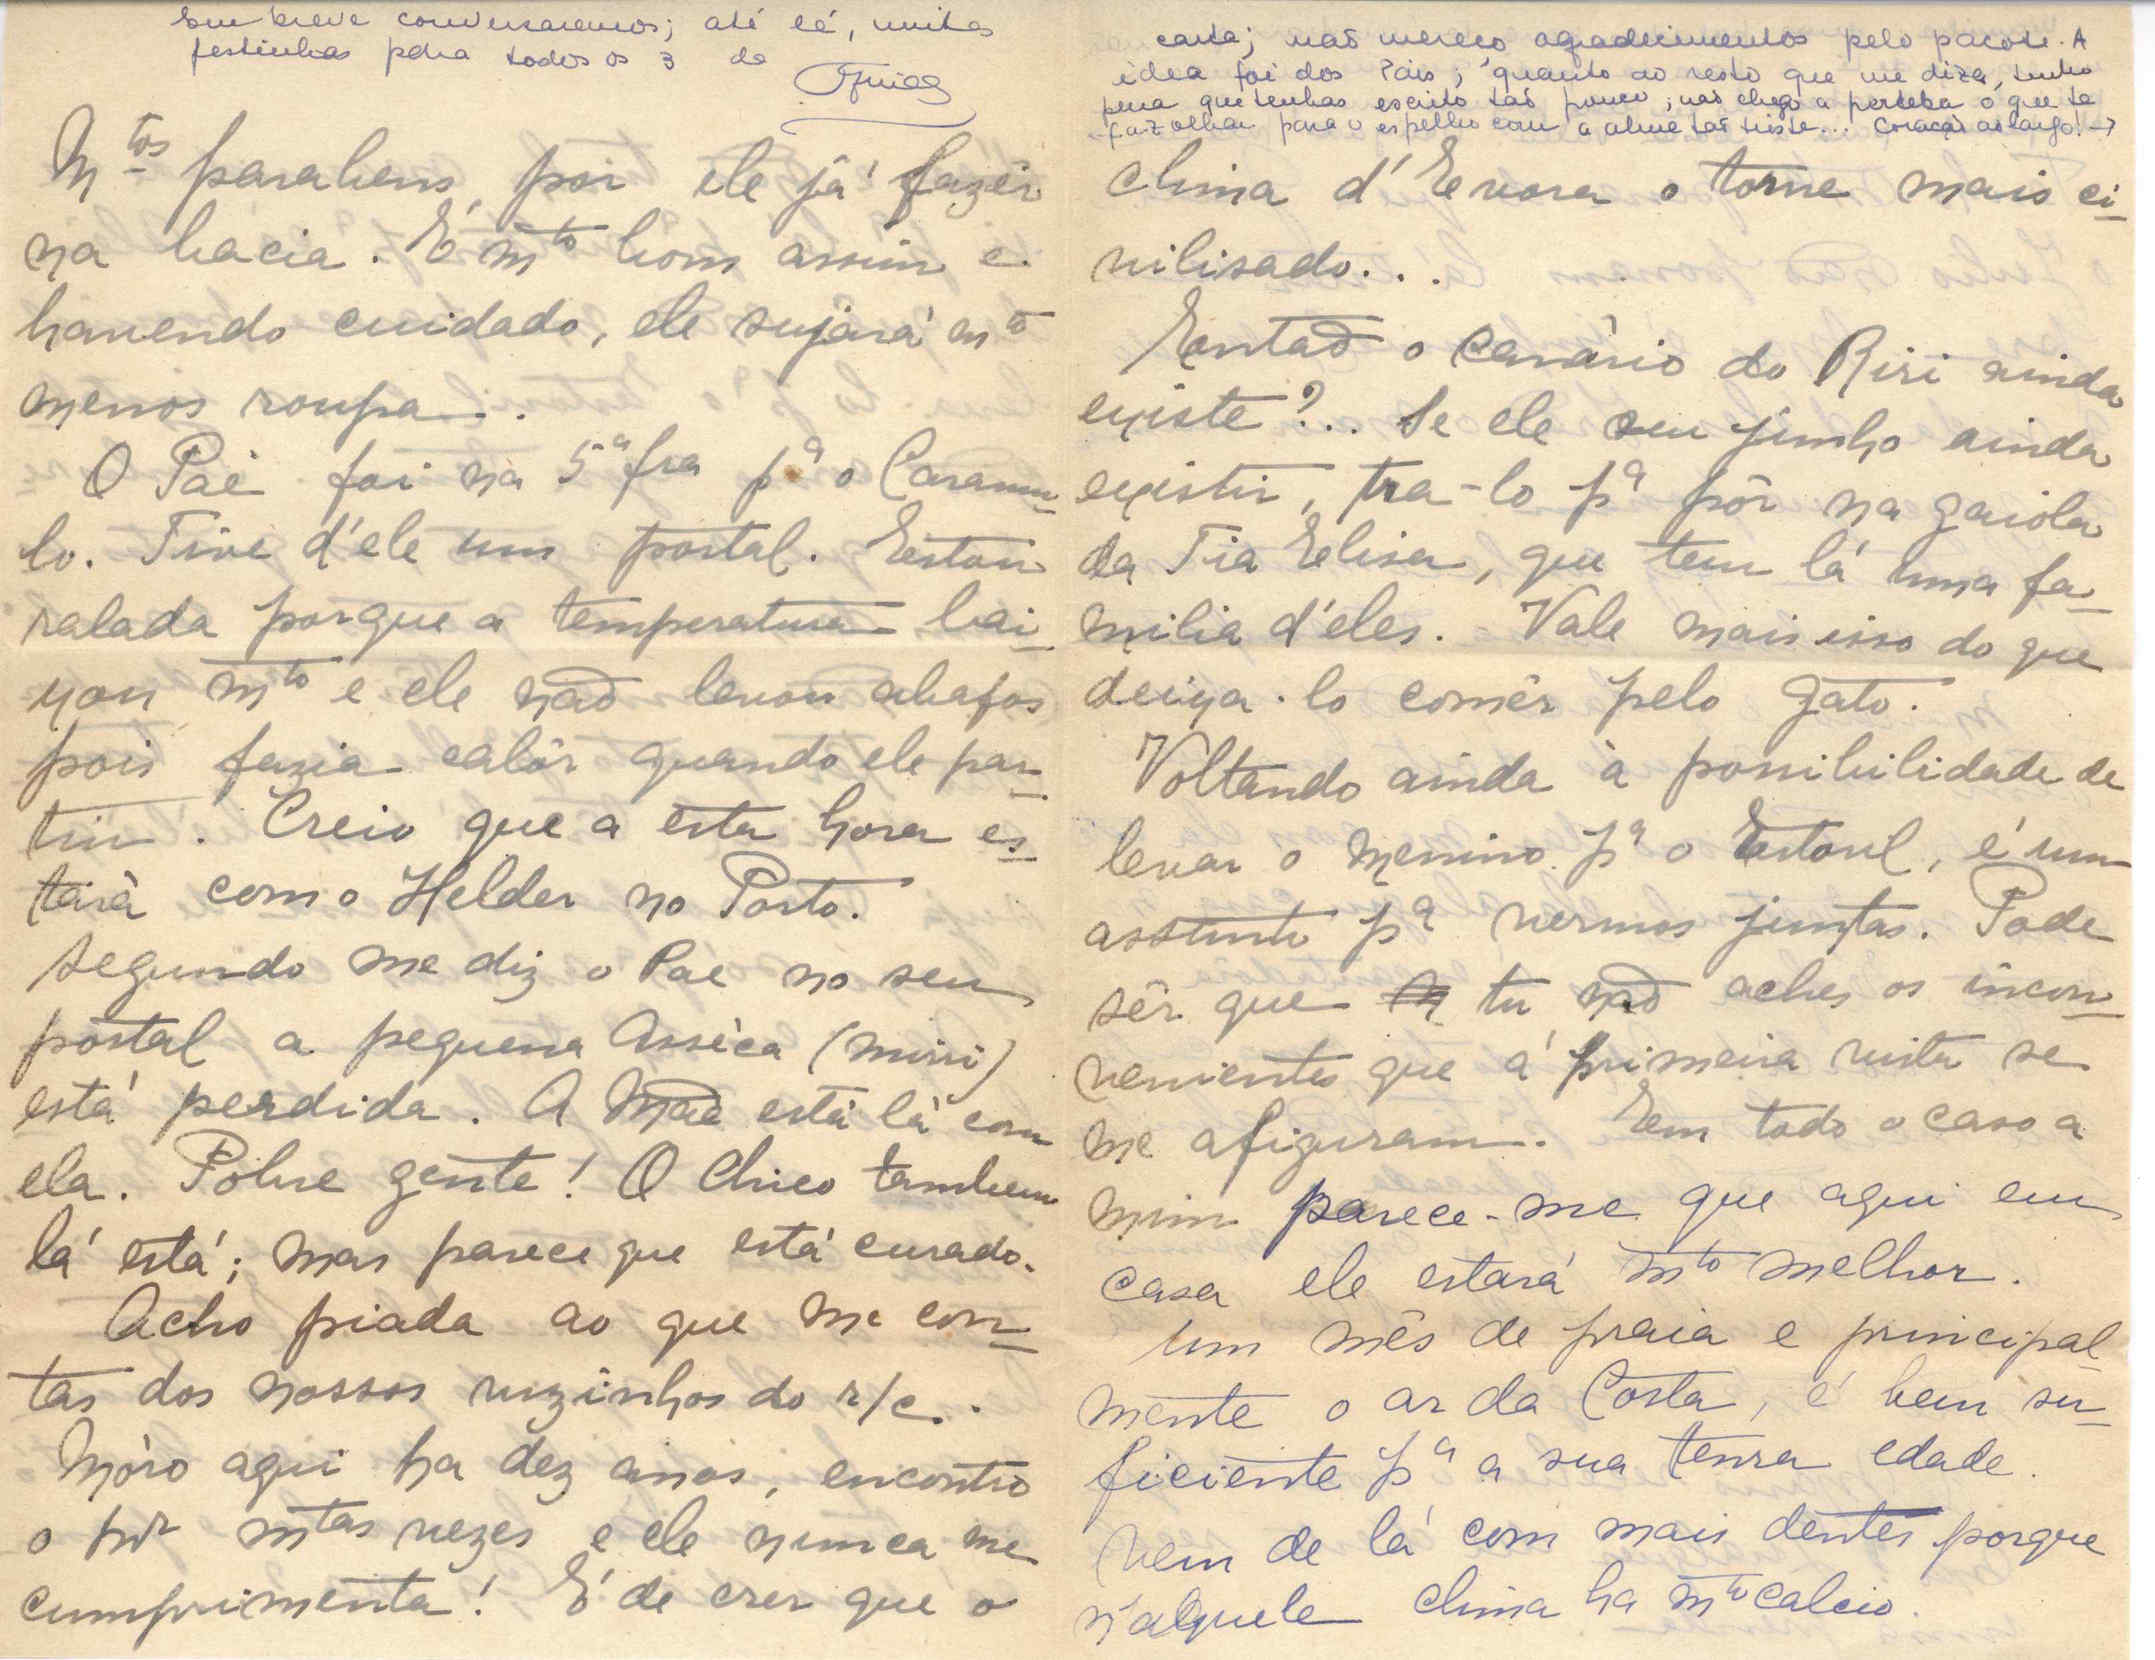 Em breve conversaremos; até lá, muitas
festinhas para todos os 3 da
Mtos parabens por ele já fazêr
na bacia. É mto bom assim e
havendo cuidado, ele sujará mto
menos roupa.
O Paè foi na 5ª fra pª o Caramu-
lo. Tive d'ele um postal. Estou
ralada porque a temperatura bai-
xou mto e ele não levou abafos
pois fazia calôr quando ele par-
tiu. Creio que a esta hora es-
tará com o Helder no Porto.
Segundo me diz o Pae no seu
postal a pequena Asséca (Mimi)
está perdida. A Mãe está lá com
ela. Pobre gente! O Chico tambem
lá está; mas parece que está curado.
Acho piada ao que me con-
tas dos nossos vizinhos do r/c..
Móro aqui ha dez anos, encontro
o mtas vezes e ele nunca me
cumprimenta! É de crer que o
carta; não mereço agradecimentos pelo pacote. A
idea foi dos Pais; quanto ao resto que me dizes, tenho
pena que tenhas escrito tão pouco; não chego a perceber o que te
faz olhar para o espelho com a alma tão triste... Coração ao largo! →
clima d'Evora o torne mais ci-
vilisado...
Então o canário do Riri ainda
existe?... Se ele em junho ainda
existir, tra-lo pª pôr na gaiola
da Tia Elisa, que tem lá uma fa-
milia d'eles. Vale mais isso do que
deixa-lo comêr pelo gato.
Voltando ainda à possibilidade de
levar o menino pª o Estoril, é um
assunto pª vermos juntas. Pode
sêr que tu não aches os incon-
venientes que á primeira vista se
me afiguram. Em todo o caso a
mim parece-me que aqui em
casa ele estará mto melhor.
Um mês de praia e principal-
mente o ar da Costa, é bem su-
ficiente pª a sua tenra edade.
Vem de lá com mais dentes porque
n'aquele clima ha mto calcio.